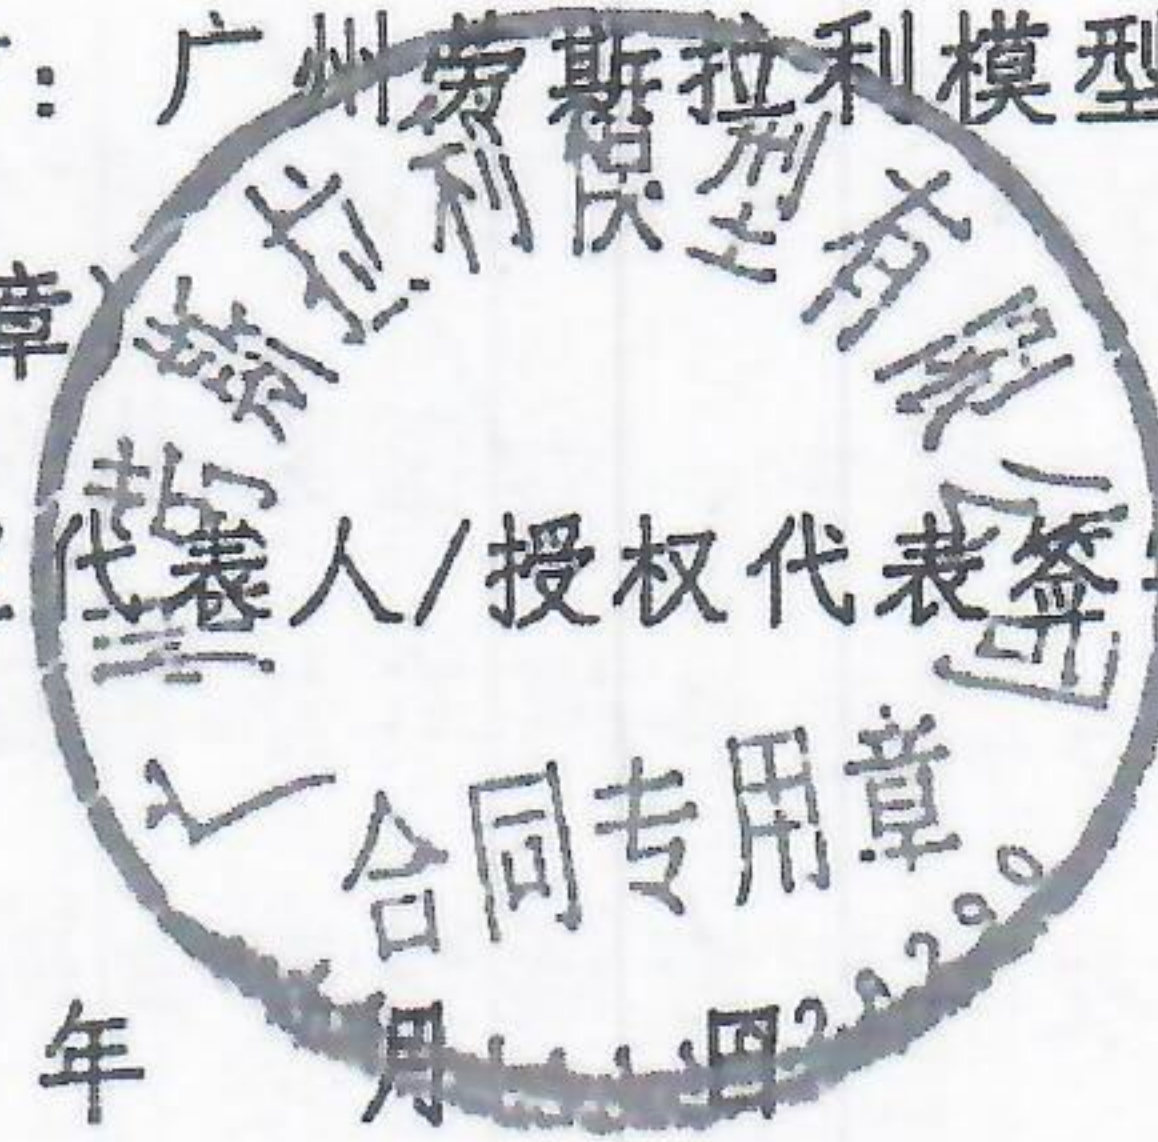 ：广州劳斯拉利模型
章）
代表人/授权代表签
年 月 日
广州劳斯拉利模型有限公司
合同专用章